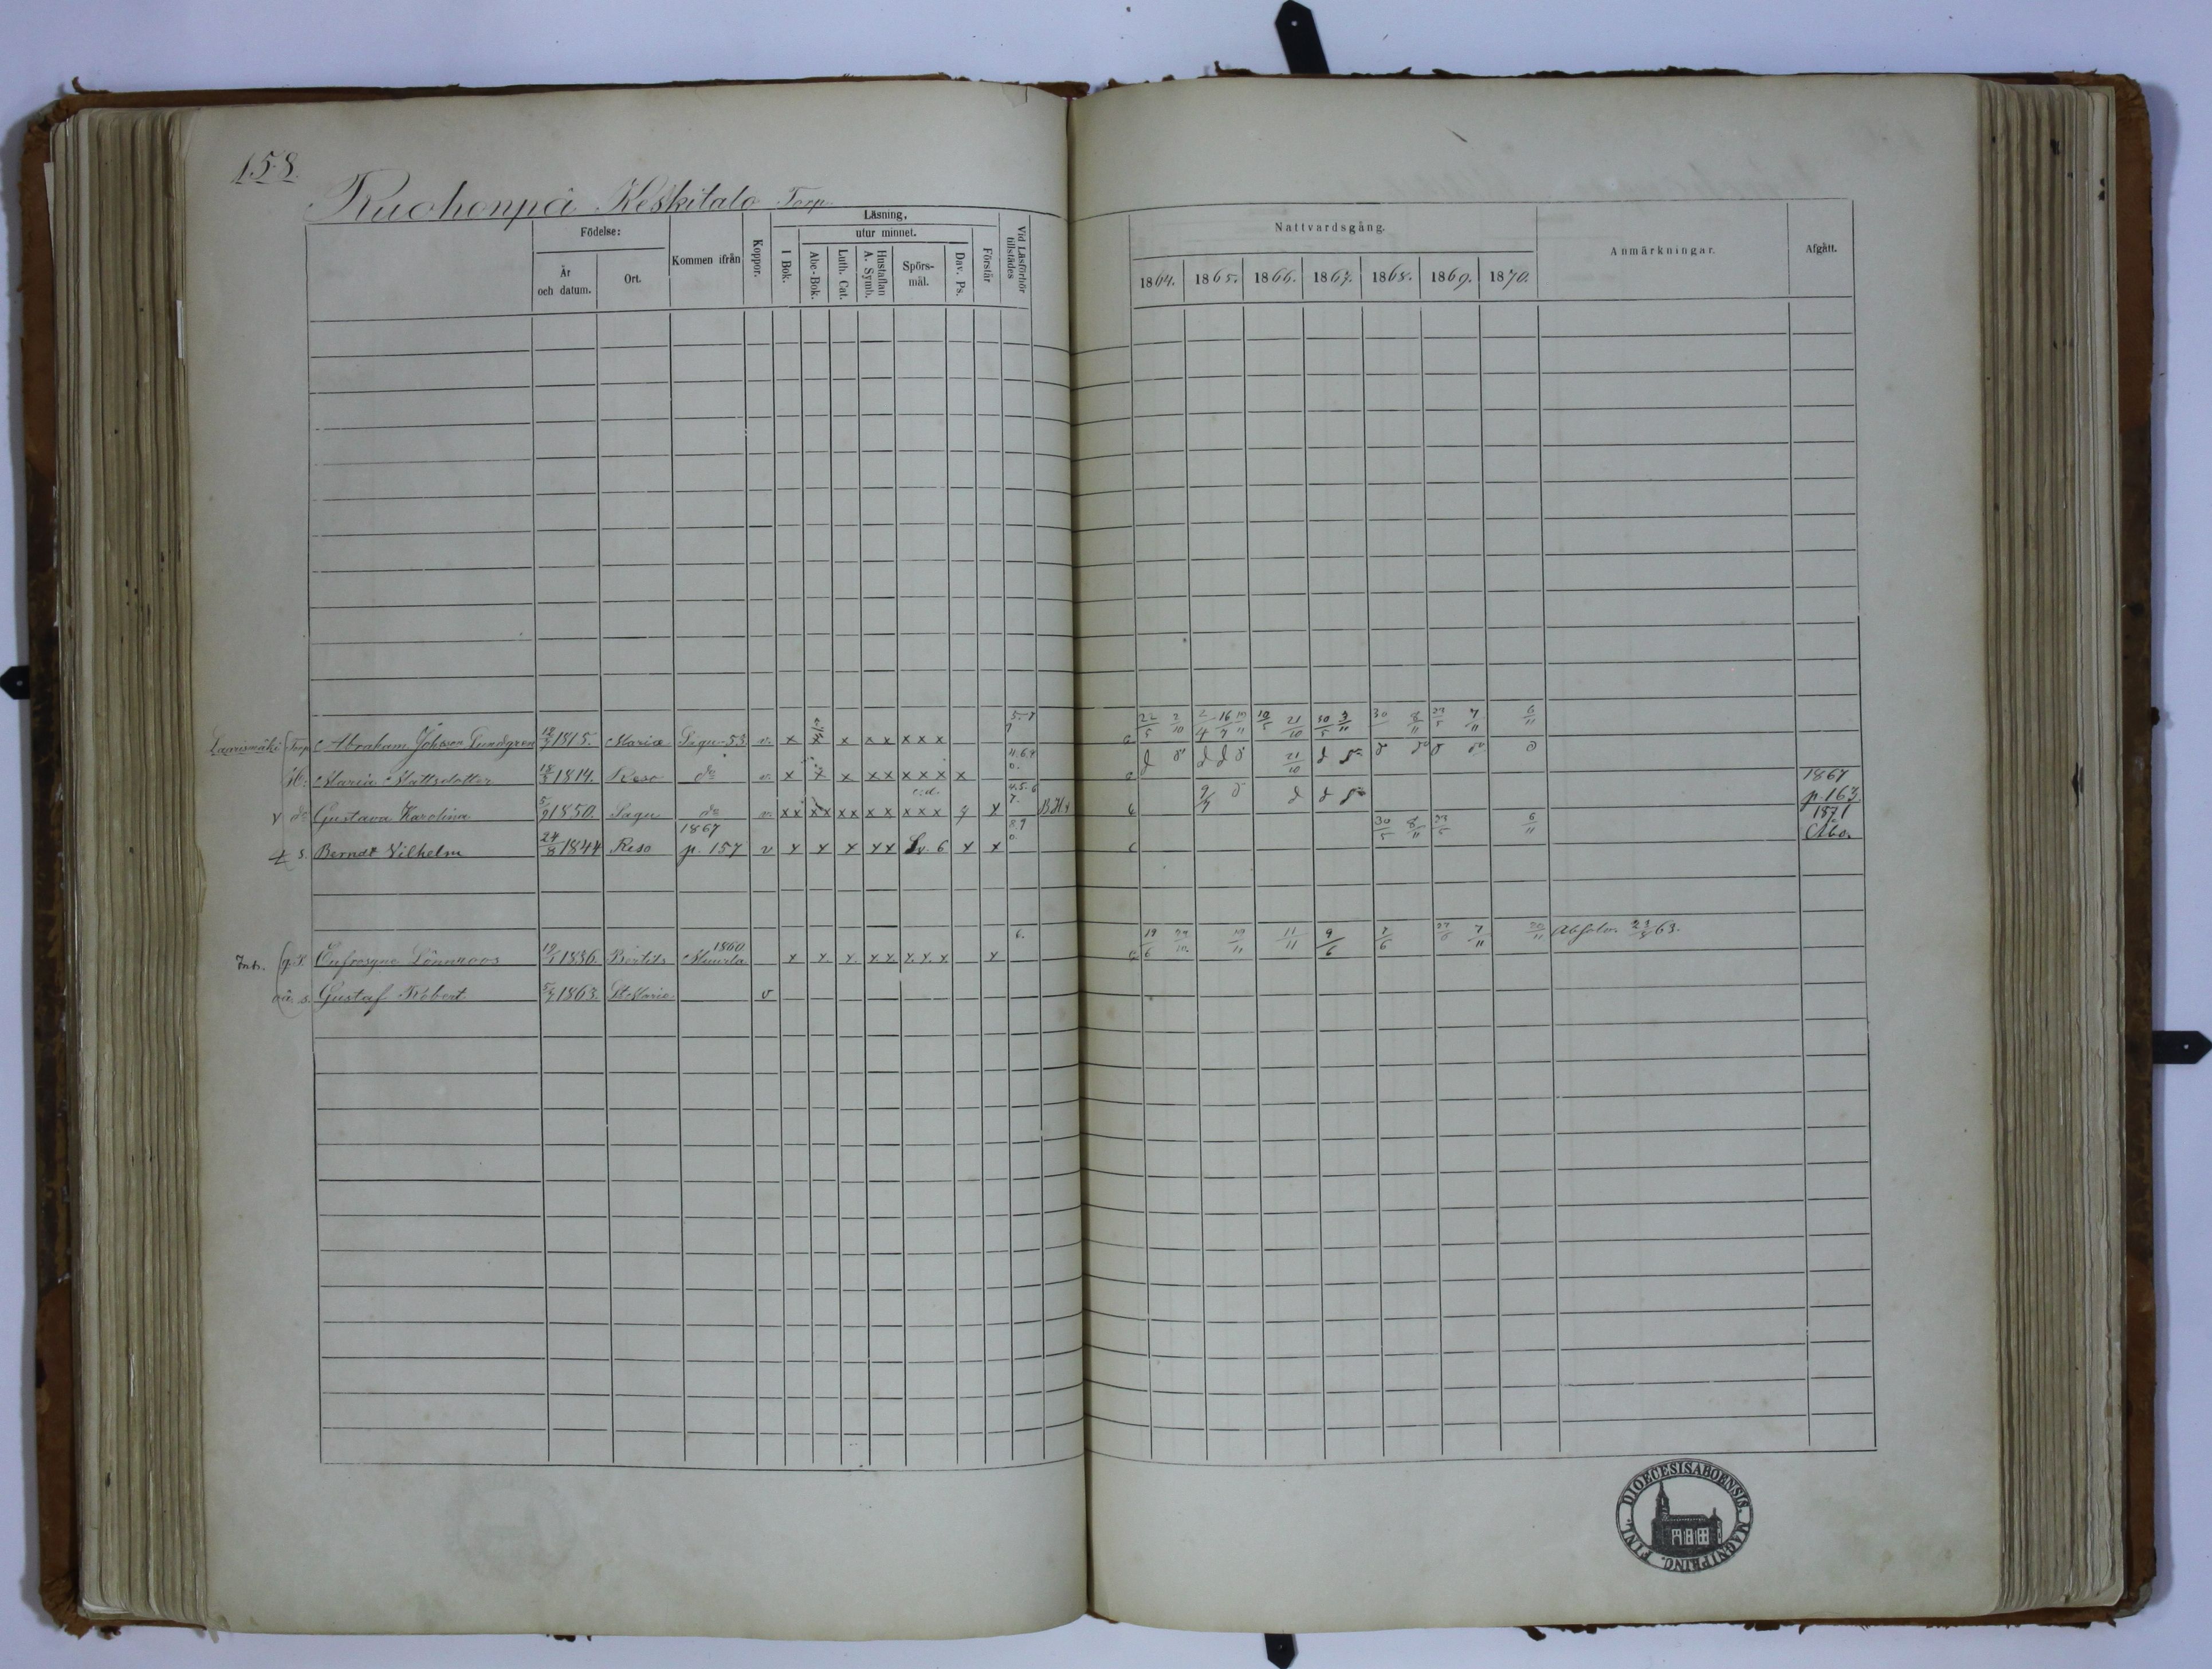 158.
Ruohonpä Keskitalo Torp
Födelse:
År och datum.
Ort.
Kommen ifrån
Koppor.
Läsning,
I Bok.
utur minnet.
Abc-Bok.
Luth. Cat.
Hustaflan A. Symb.
Spörsmål.
Dav. Ps.
Förstår
Vid Läsförhör tillstädes
Nattvardsgång.
1864. 1865. 1866. 1867. 1868. 1869. 1870.
Anmärkningar.
Afgått.
Torp. Abraham Johsson Lundgren 1815. Mariæ Sagu-53 v. x x x x x x x x 22/5 2/10 2/4 16/7 10/5 21/10 30/5 3/11 30 8/11 23/5 7/11 6/11
H. Maria Mattsdotter 18/3 1814. Reso do v. x x x x x x x x x 4.6.9 0. 21/10
do Gustava Karolina 5/9 1850. Sagu do v. xx xx xx xx xxx 9 x 4.5.6 7. B.H. 1867 p. 163
s. Berndt Vilhelm 24/8 1844 Reso 1867 p. 157 v x x x xx Sv. 6 x x 8.9 0. 30/5 8/11 23/5 6/11 1871 Åbo.
Inh. Eufrosyne Lönnroos 1836. Bertils 1860 Muurla x x. x. x x x. x. x x 6. 19/6 11/11 9/6 7/6 7/11 20/11 Absolv. 63.
oä. s. Gustaf Robert 1863. St Marie v
DIOECESIS ABOENSIS. MAGNI PRINC. FINL.